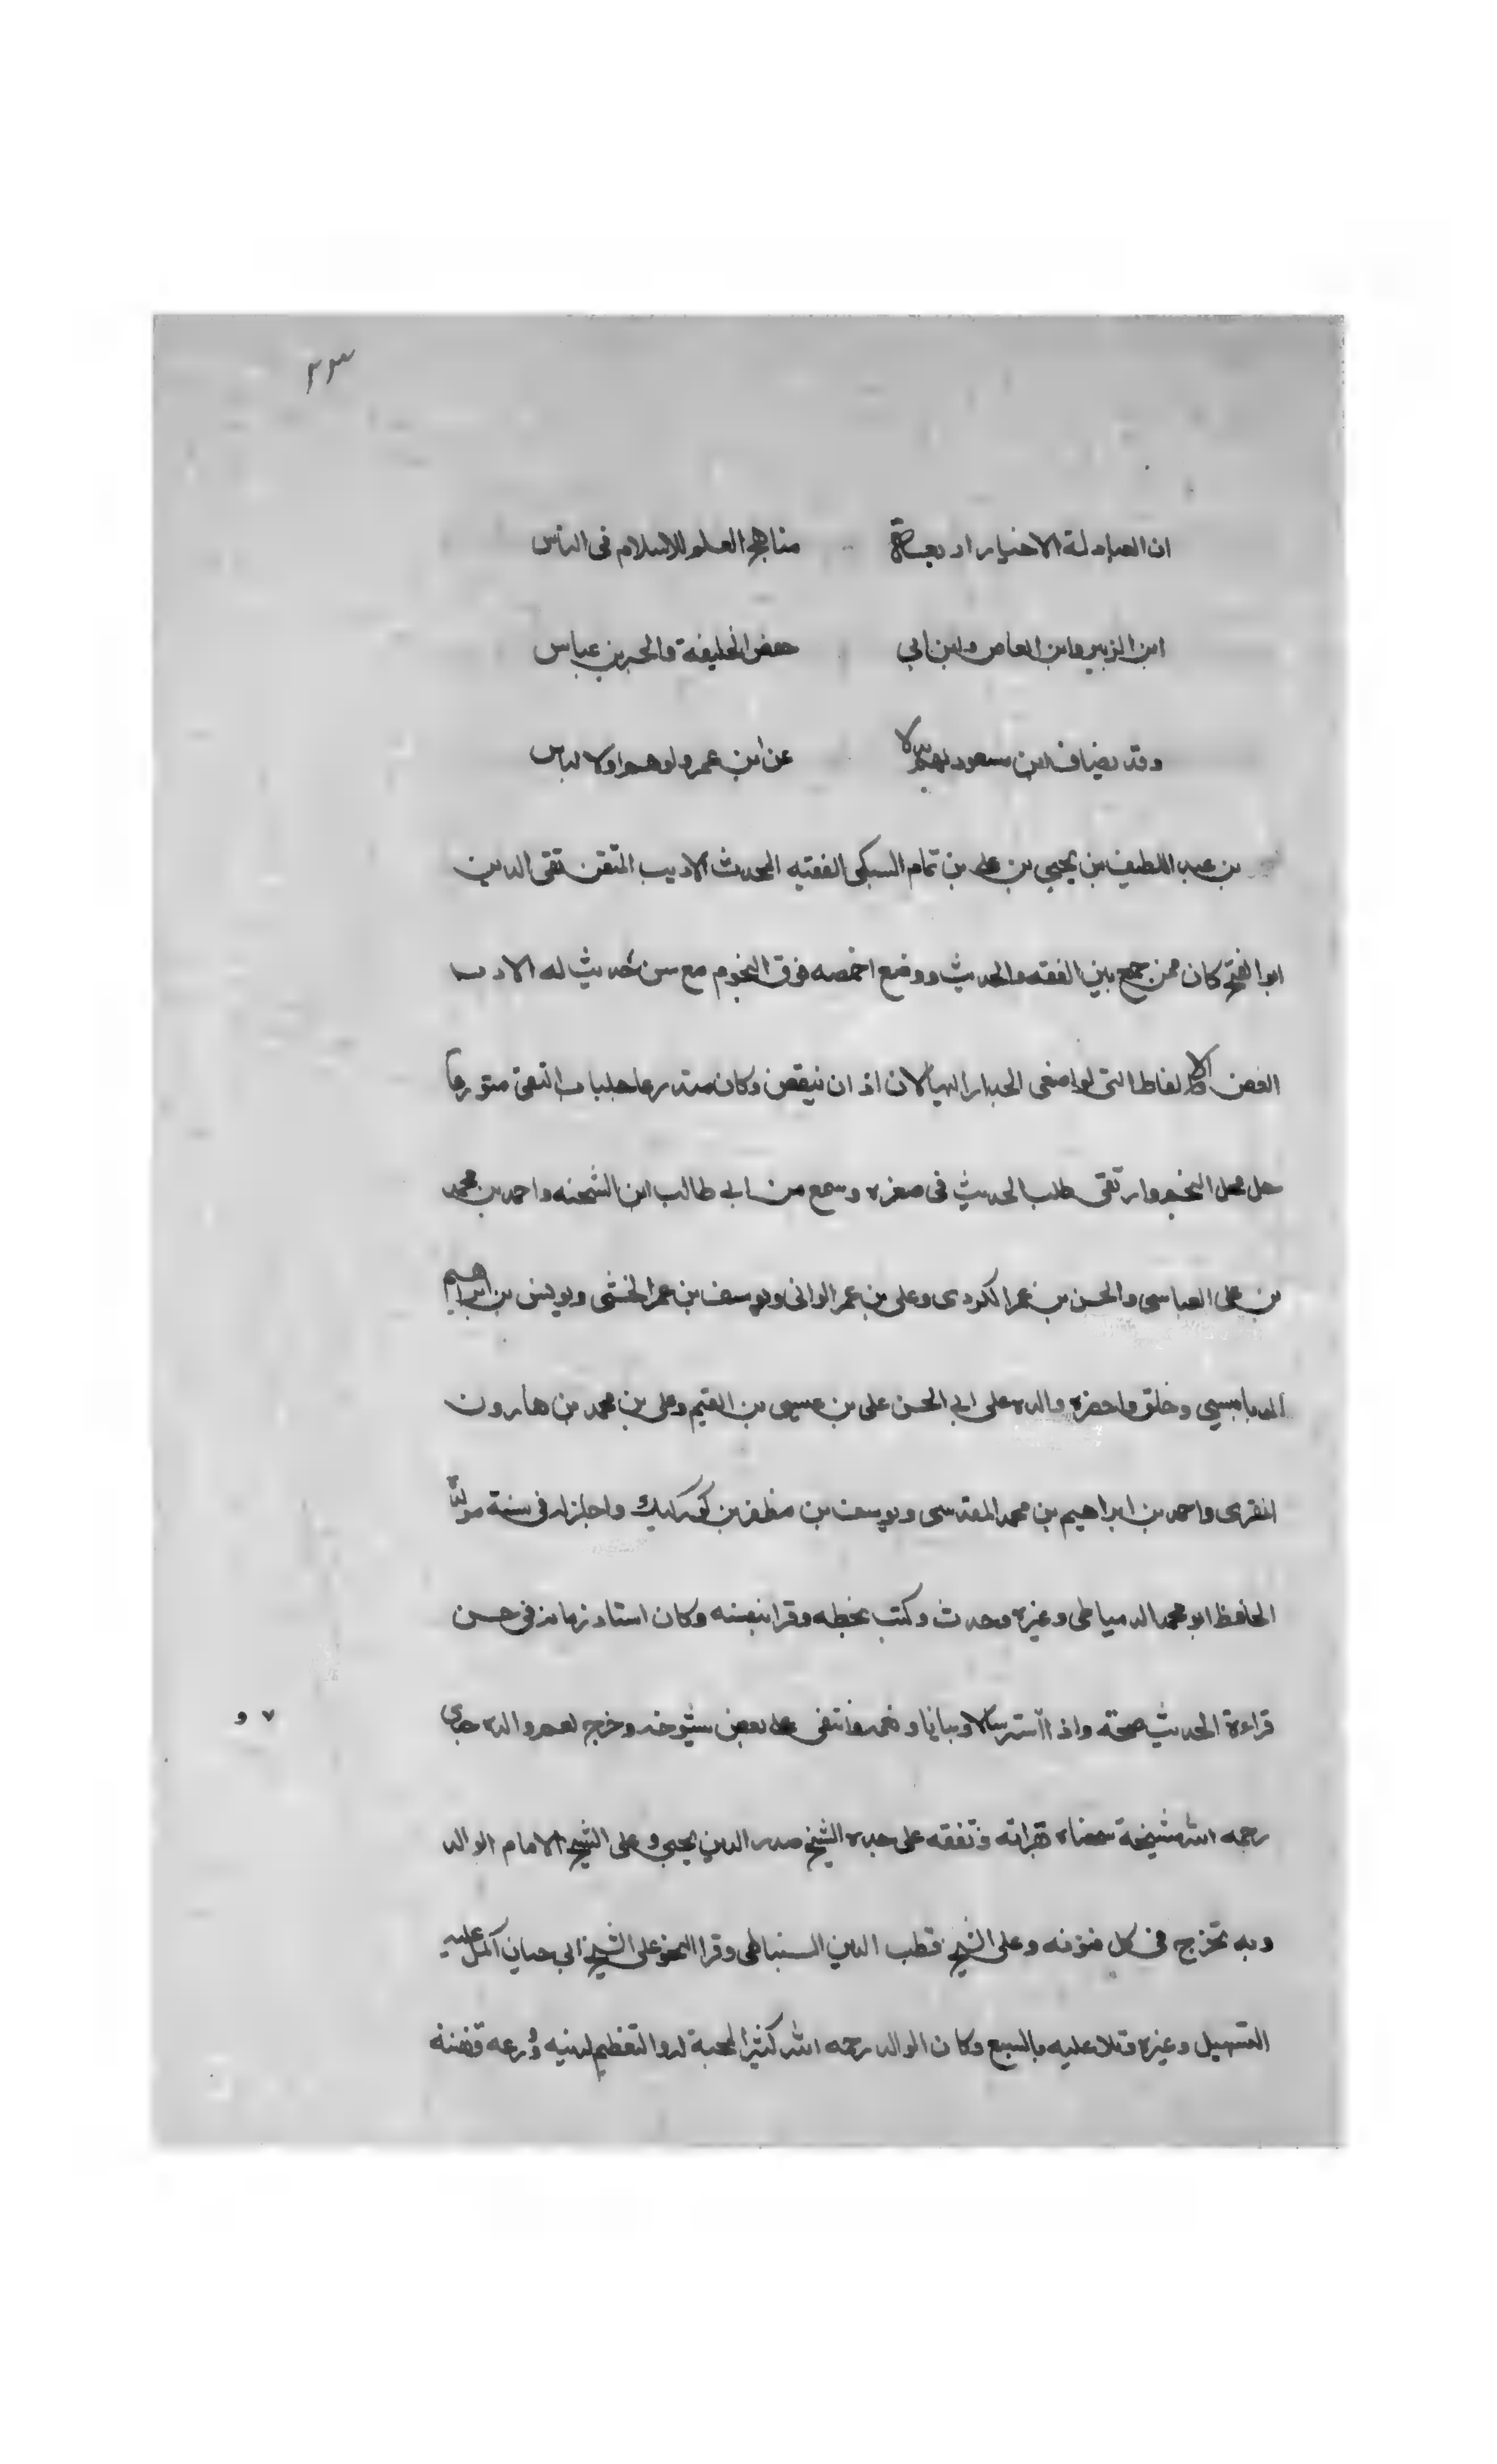 ٢٣
ان العبادلة الاخيار اربعة مناهج العلم للاسلام فى الناس
ابن الزبير وابن العاص وابن ابى حفص الخليفة والحبر بن عباس
وقد يضاف ابن مسعود لهم بدلا عن ابن عمرو لوهم او لالباس
بن عبد اللطيف بن يحيى بن على بن تمام السبكى الفقيه المحدث الاديب المتقن تقى الدين
ابو الفتح كان ممن جمع بين الفقه والحديث ووضع اخمصه فوق النجوم مع سن حديث له الادب
الغض الالفاظ التى لو اصغى الجدار اليها لان اذ ان ينقض وكان متدرعا جلباب التقى متورعا
حل محل النجم وارتقى طلب الحديث فى صغره وسمع من ابى طالب ابن الشحنه واحمد بن محمد
بن على العباسى والحسن بن عمر الكردى وعلى بن عمر الوانى ويوسف بن عمر الختنى ويونس بن ابراهيم
الدبابيسى وخلق واحضره والده على ابى الحسن على بن عيسى بن القيم وعلى بن محمد بن هارون
المقرى واحمد بن ابراهيم بن محمد المقدسى ويوسف بن مظفر بن كوركيك واجاز له فى سنة مولده
الحافظ ابو محمد الدمياطى وغيره وحدث وكتب بخطه وقرا بنفسه وكان استاد زمانه فى حسن
قراءة الحديث صحة واذا وبيانا وانتقى على بعض شيوخه وخرج لعم والده جدى
٧ و
رحمه الله مشيخة سمعناه بقراته وتفقه على جده الشيخ صدر الدين يحيى وعلى الشيخ الامام الوالد
وبه تخرج فى كل فنونه وعلى الشيخ قطب الدين السنباطى وقرا النحو على الشيخ ابى حيان اكمل عليه
التسهيل وغيره وتلا عليه بالسبع وكان الوالد رحمه الله كثير المحبة له والتعظيم لدينه وورعه